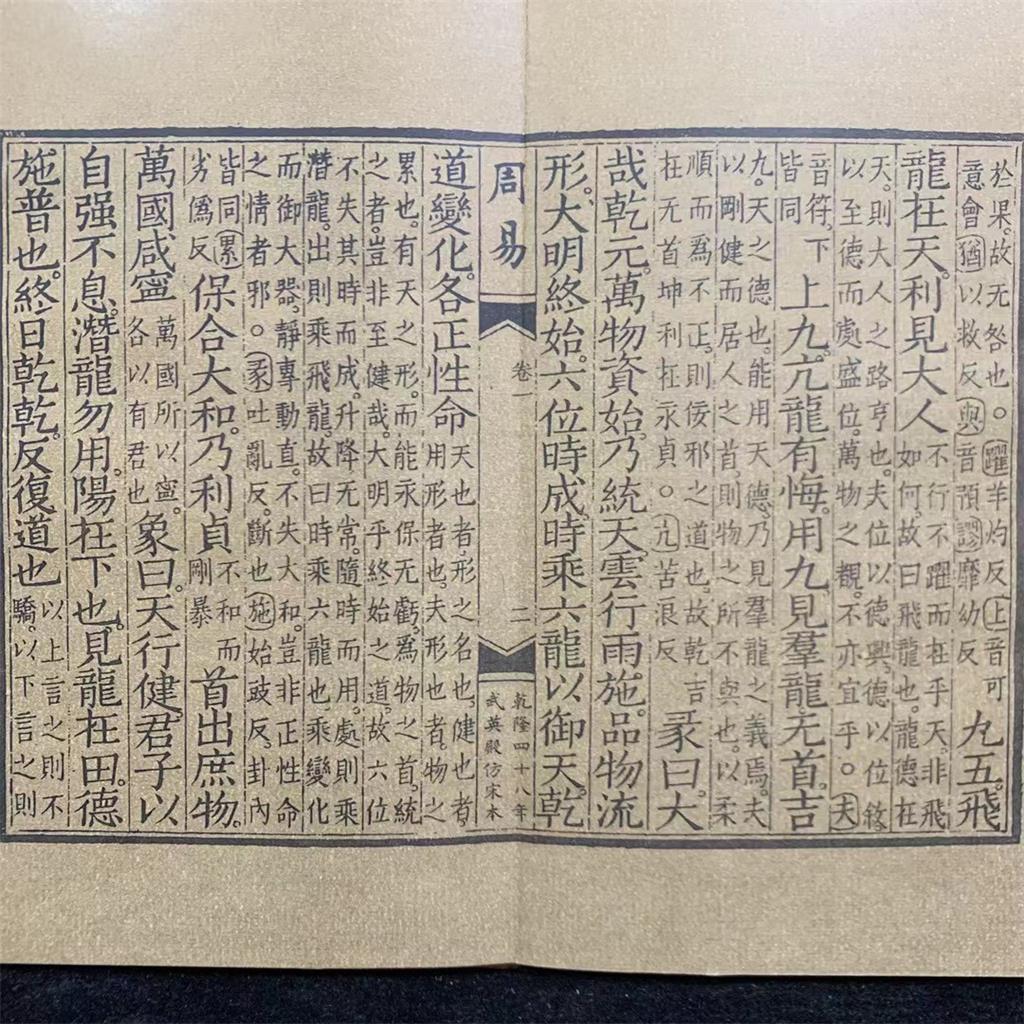 於果。故无咎也。○躍羊灼反上音可
意會猶以救反與音預謬靡幼反
九五。飛
龍在天。利見大人
不行不躍而在乎天。非飛
如何。故曰飛龍也。龍德在
天。則大人之路亨也。夫位以德興。德以位敘
以至德而處盛位。萬物之觀。不亦宜乎。○夫
音符。下
皆同
上九。亢龍有悔。用九。見羣龍无首。吉
九。天之德也。能用天德。乃見羣龍之義焉。夫
以剛健而居人之首。則物之所不與也。以柔
順而爲不正。則佞邪之道也。故乾吉
在无首坤利在永貞。○亢苦浪反
彖曰。大
哉乾元。萬物資始。乃統天。雲行雨施。品物流
形。大明終始。六位時成。時乘六龍以御天。乾
周易
卷一
二
乾隆四十八年
武英殿仿宋本
道變化。各正性命
天也者。形之名也。健也者。
用形者也。夫形也者。物之
累也。有天之形。而能永保无虧。爲物之首。統
之者。豈非至健哉。大明乎終始之道。故六位
不失其時而成。升降无常。隨時而用。處則乘
潛龍。出則乘飛龍。故曰時乘六龍也。乘變化
而御大器。靜專動直。不失大和。豈非正性命
之情者邪。○彖吐亂反。斷也施始豉反。卦內
皆同累
劣僞反
保合大和。乃利貞
不和而
剛暴
首出庶物。
萬國咸寧
萬國所以寧。
各以有君也
象曰。天行健。君子以
自强不息。潛龍勿用。陽在下也。見龍在田。德
施普也。終日乾乾。反復道也
以上言之則不
驕。以下言之則